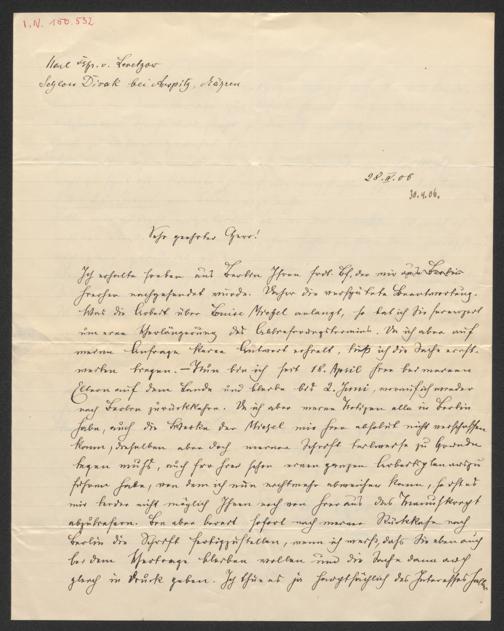 I.N. 160.532
Karl Frh. v. Levetzow
Schloss Divak bei Auspitz, Mähren
28.IV.06
30.4.06.
Sehr geehrter Herr!
Ich erhalte soeben aus Berlin Ihren frdl. Bf, der mir aus Berlin
hierher nachgesendet wurde. Daher die verspätete Beantwortung.
Was die Arbeit über Louise Michel anlangt, so bat ich Sie seinerzeit
um eine Verlängerung des Ablieferungstermins. Da ich aber auf
meine Anfrage keine Antwort erhielt, ließ ich die Sache
liegen. – Nun bin ich seit 18. April hier bei meinen
Eltern auf dem Lande und bleibe bis 2. Juni, worauf ich wieder
nach Berlin zurückkehre. Da ich aber meine Notizen alle in Berlin
habe, auch die Werke der Michel mir hier absolut nicht verschaffen
kann, dieselben aber doch meiner Schrift teilweise zu Grunde
legen muß, auch für hier schon einen ganzen Arbeitsplan auszu
führen habe, von dem ich nun nicht mehr abweichen kann, so ist es
mir leider nicht möglich Ihnen noch von hier aus das Manuskript
abzuliefern. Bin aber bereit sofort nach meiner Rückkehr nach
Berlin die Schrift fertigzustellen, wenn ich weiß, daß Sie eben auch
bei dem Vertrage bleiben wollen und die Sache dann auch
gleich in Druck geben. Ich thue es ja hauptsächlich des Interesses